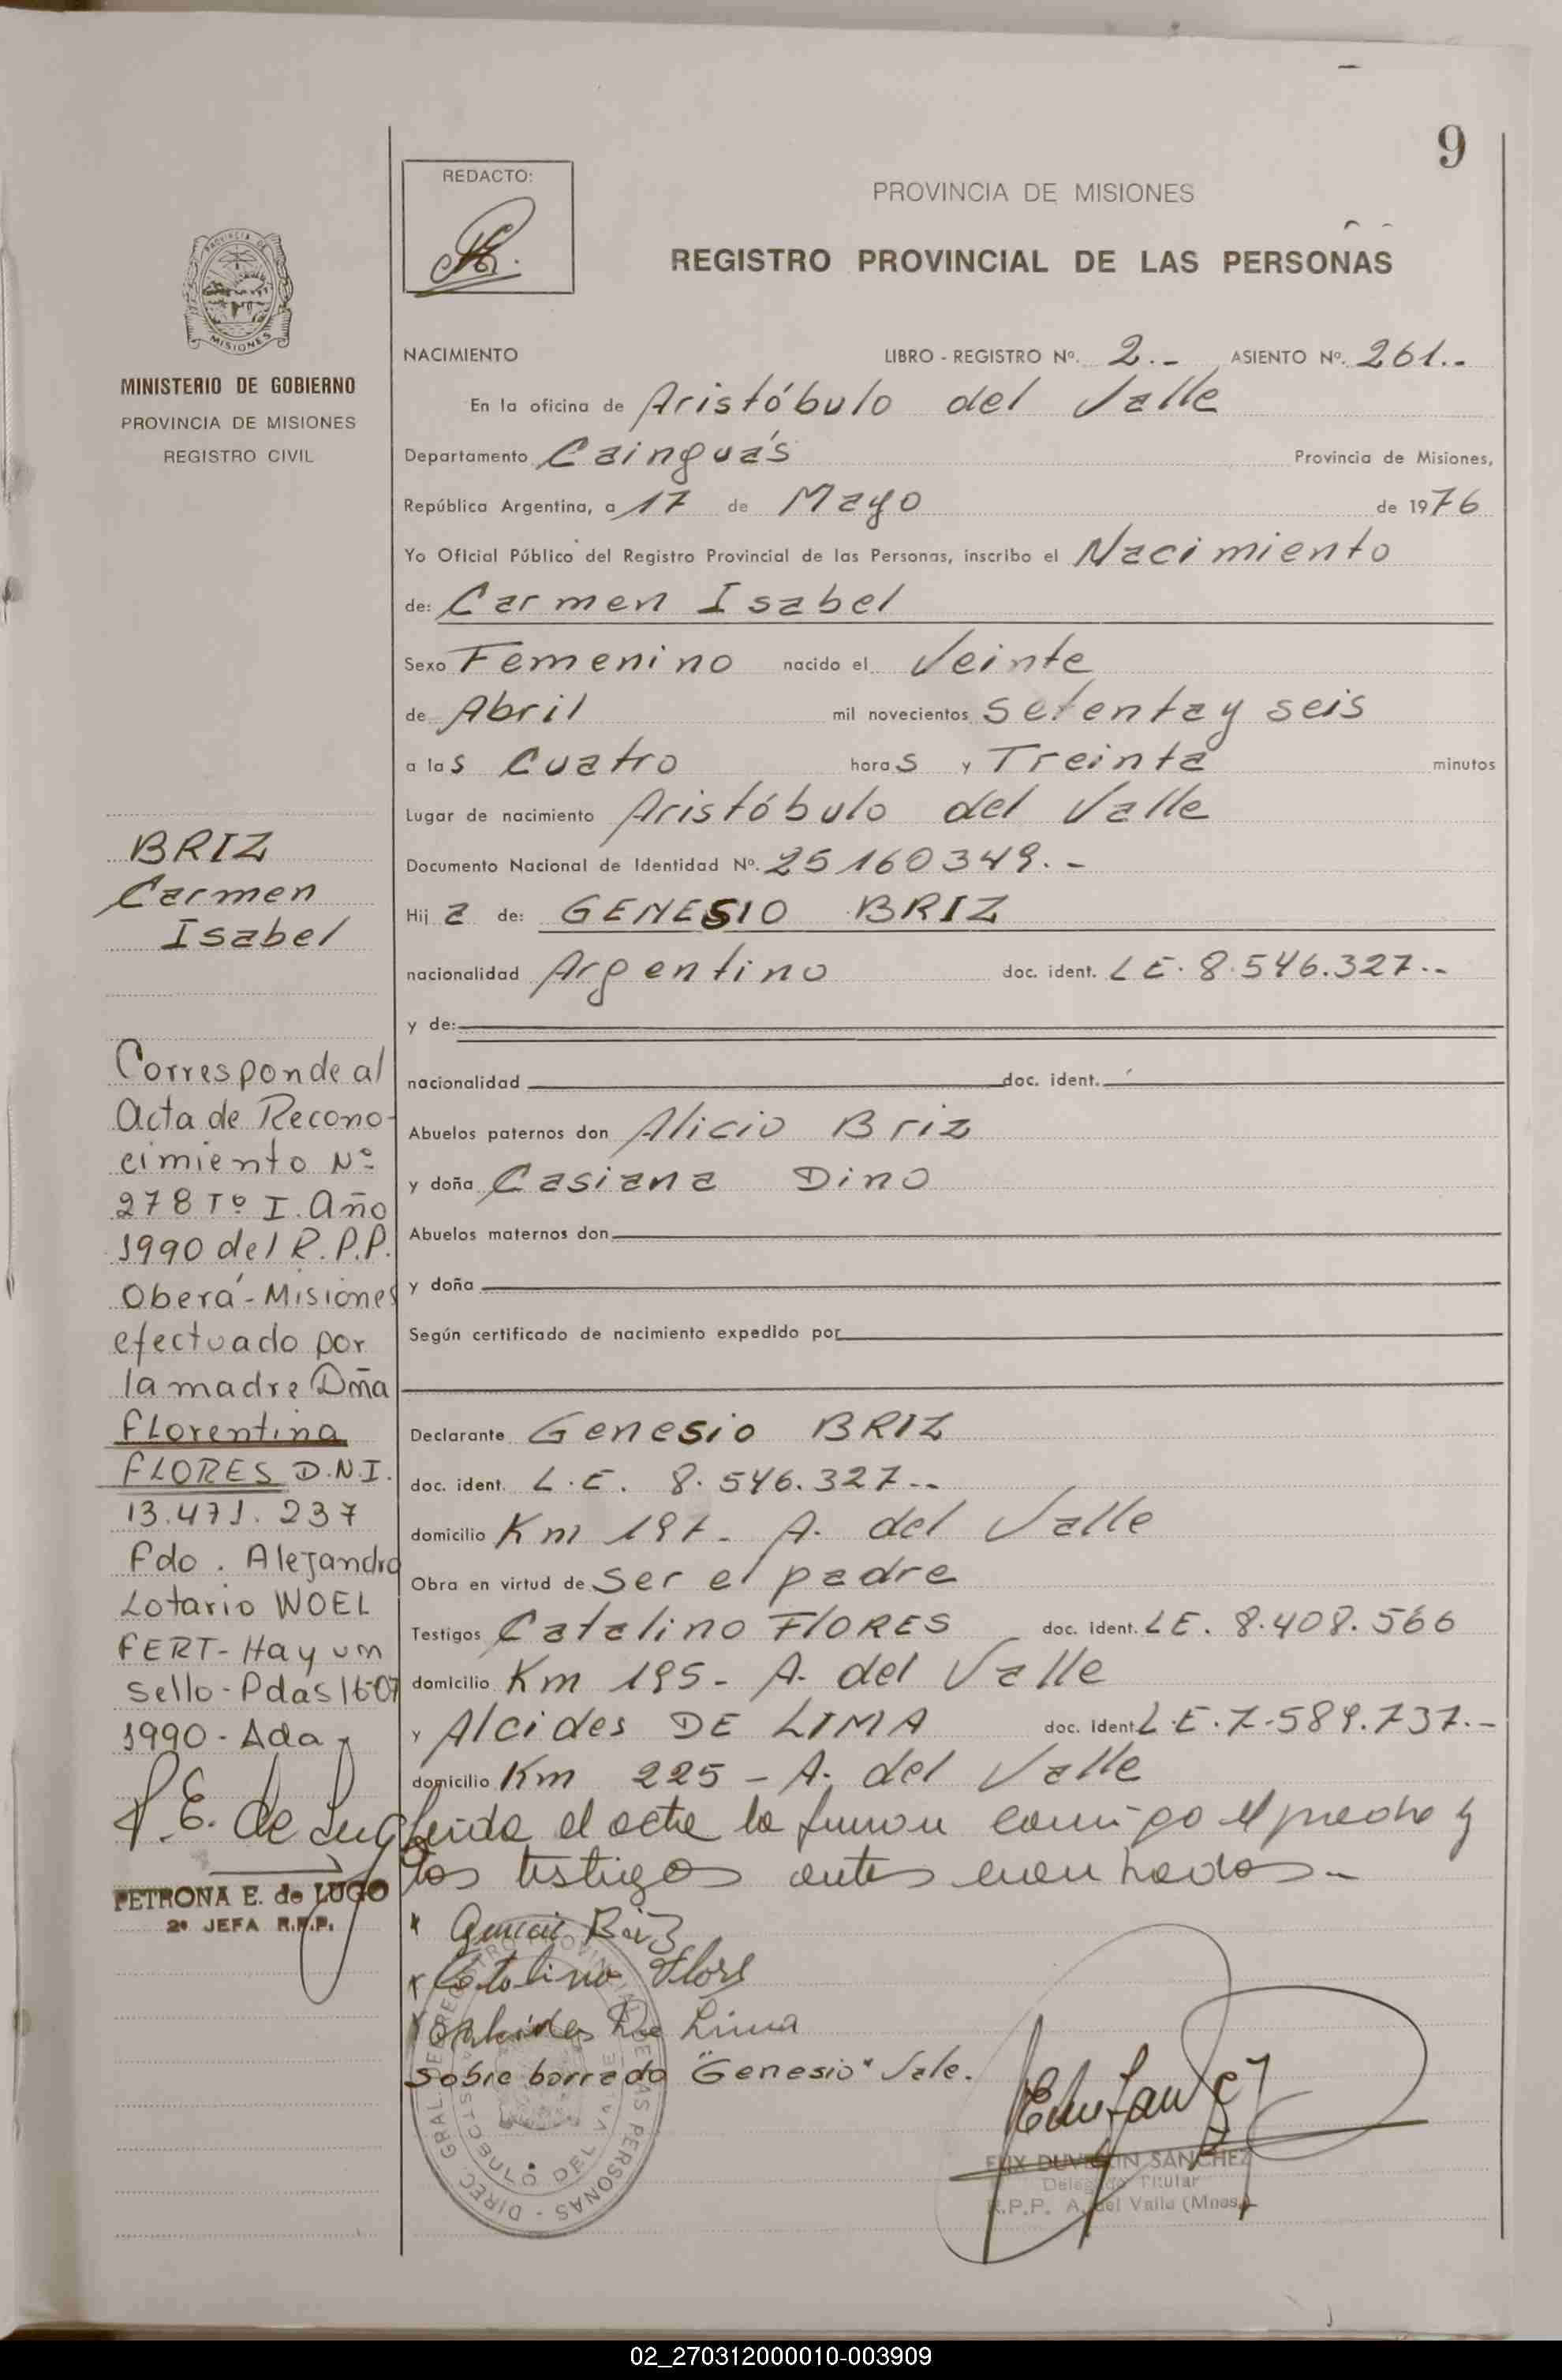 9
REDACTO:
PROVINCIA DE MISIONES
REGISTRO PROVINCIAL DE LAS PERSONAS
PROVINCIA DE
MISIONES
MINISTERIO DE GOBIERNO
PROVINCIA DE MISIONES
REGISTRO CIVIL
NACIMIENTO LIBRO - REGISTRO Nº. 2.- ASIENTO Nº. 261.-
En la oficina de Aristóbulo del Valle
Departamento Cainguás Provincia de Misiones,
República Argentina, a 17 de Mayo de 1976
Yo Oficial Público del Registro Provincial de las Personas, inscribo el Nacimiento
de: Carmen Isabel
Sexo Femenino nacido el Veinte
de Abril mil novecientos setenta y seis
a las cuatro horas y Treinta minutos
Lugar de nacimiento Aristóbulo del Valle
Documento Nacional de Identidad Nº. 25160349.-
Hija de: GENESIO BRIZ
nacionalidad Argentino doc. ident. LE. 8.546.327.-
y de:
nacionalidad doc. ident.
Abuelos paternos don Alicio Briz
y doña Casiana Dino
Abuelos maternos don
y doña
Según certificado de nacimiento expedido por
Declarante Genesio BRIZ
doc. ident. L.E. 8.546.327.-
domicilio Km 197- A. del Valle
Obra en virtud de ser el padre
Testigos Catalino FLORES doc. ident. LE. 8.408.566
domicilio Km 195- A. del Valle
y Alcides DE LIMA doc. ident. L.E. 7.589.737.-
domicilio Km 225 - A. del Valle
Leida el acta la firman conmigo el padre y
los testigos antes nombrados.-
Briz
Catalino Flores
Alcides De Lima
Sobre borrado "Genesio" Vale.
DIREC. GRAL. DE REGISTRO PROVINCIAL DE LAS PERSONAS
ARISTOBULO DEL VALLE
SANCHEZ
Delegado Titular
R.P.P. A. del Valle (Mnes.)
BRIZ
Carmen
Isabel
Corresponde al
Acta de Recono-
cimiento Nº
278 Tº I. Año
1990 del R.P.P.
Oberá-Misiones
efectuado por
la madre Dña
Florentina
FLORES D.N.I.
13.471.237
Fdo. Alejandro
Lotario WOEL
FERT-Hay un
sello-Pdas 16-07
1990-Ada
P.E. de Lugo
PETRONA E. de LUGO
2ª JEFA R.P.P.
02_270312000010-003909